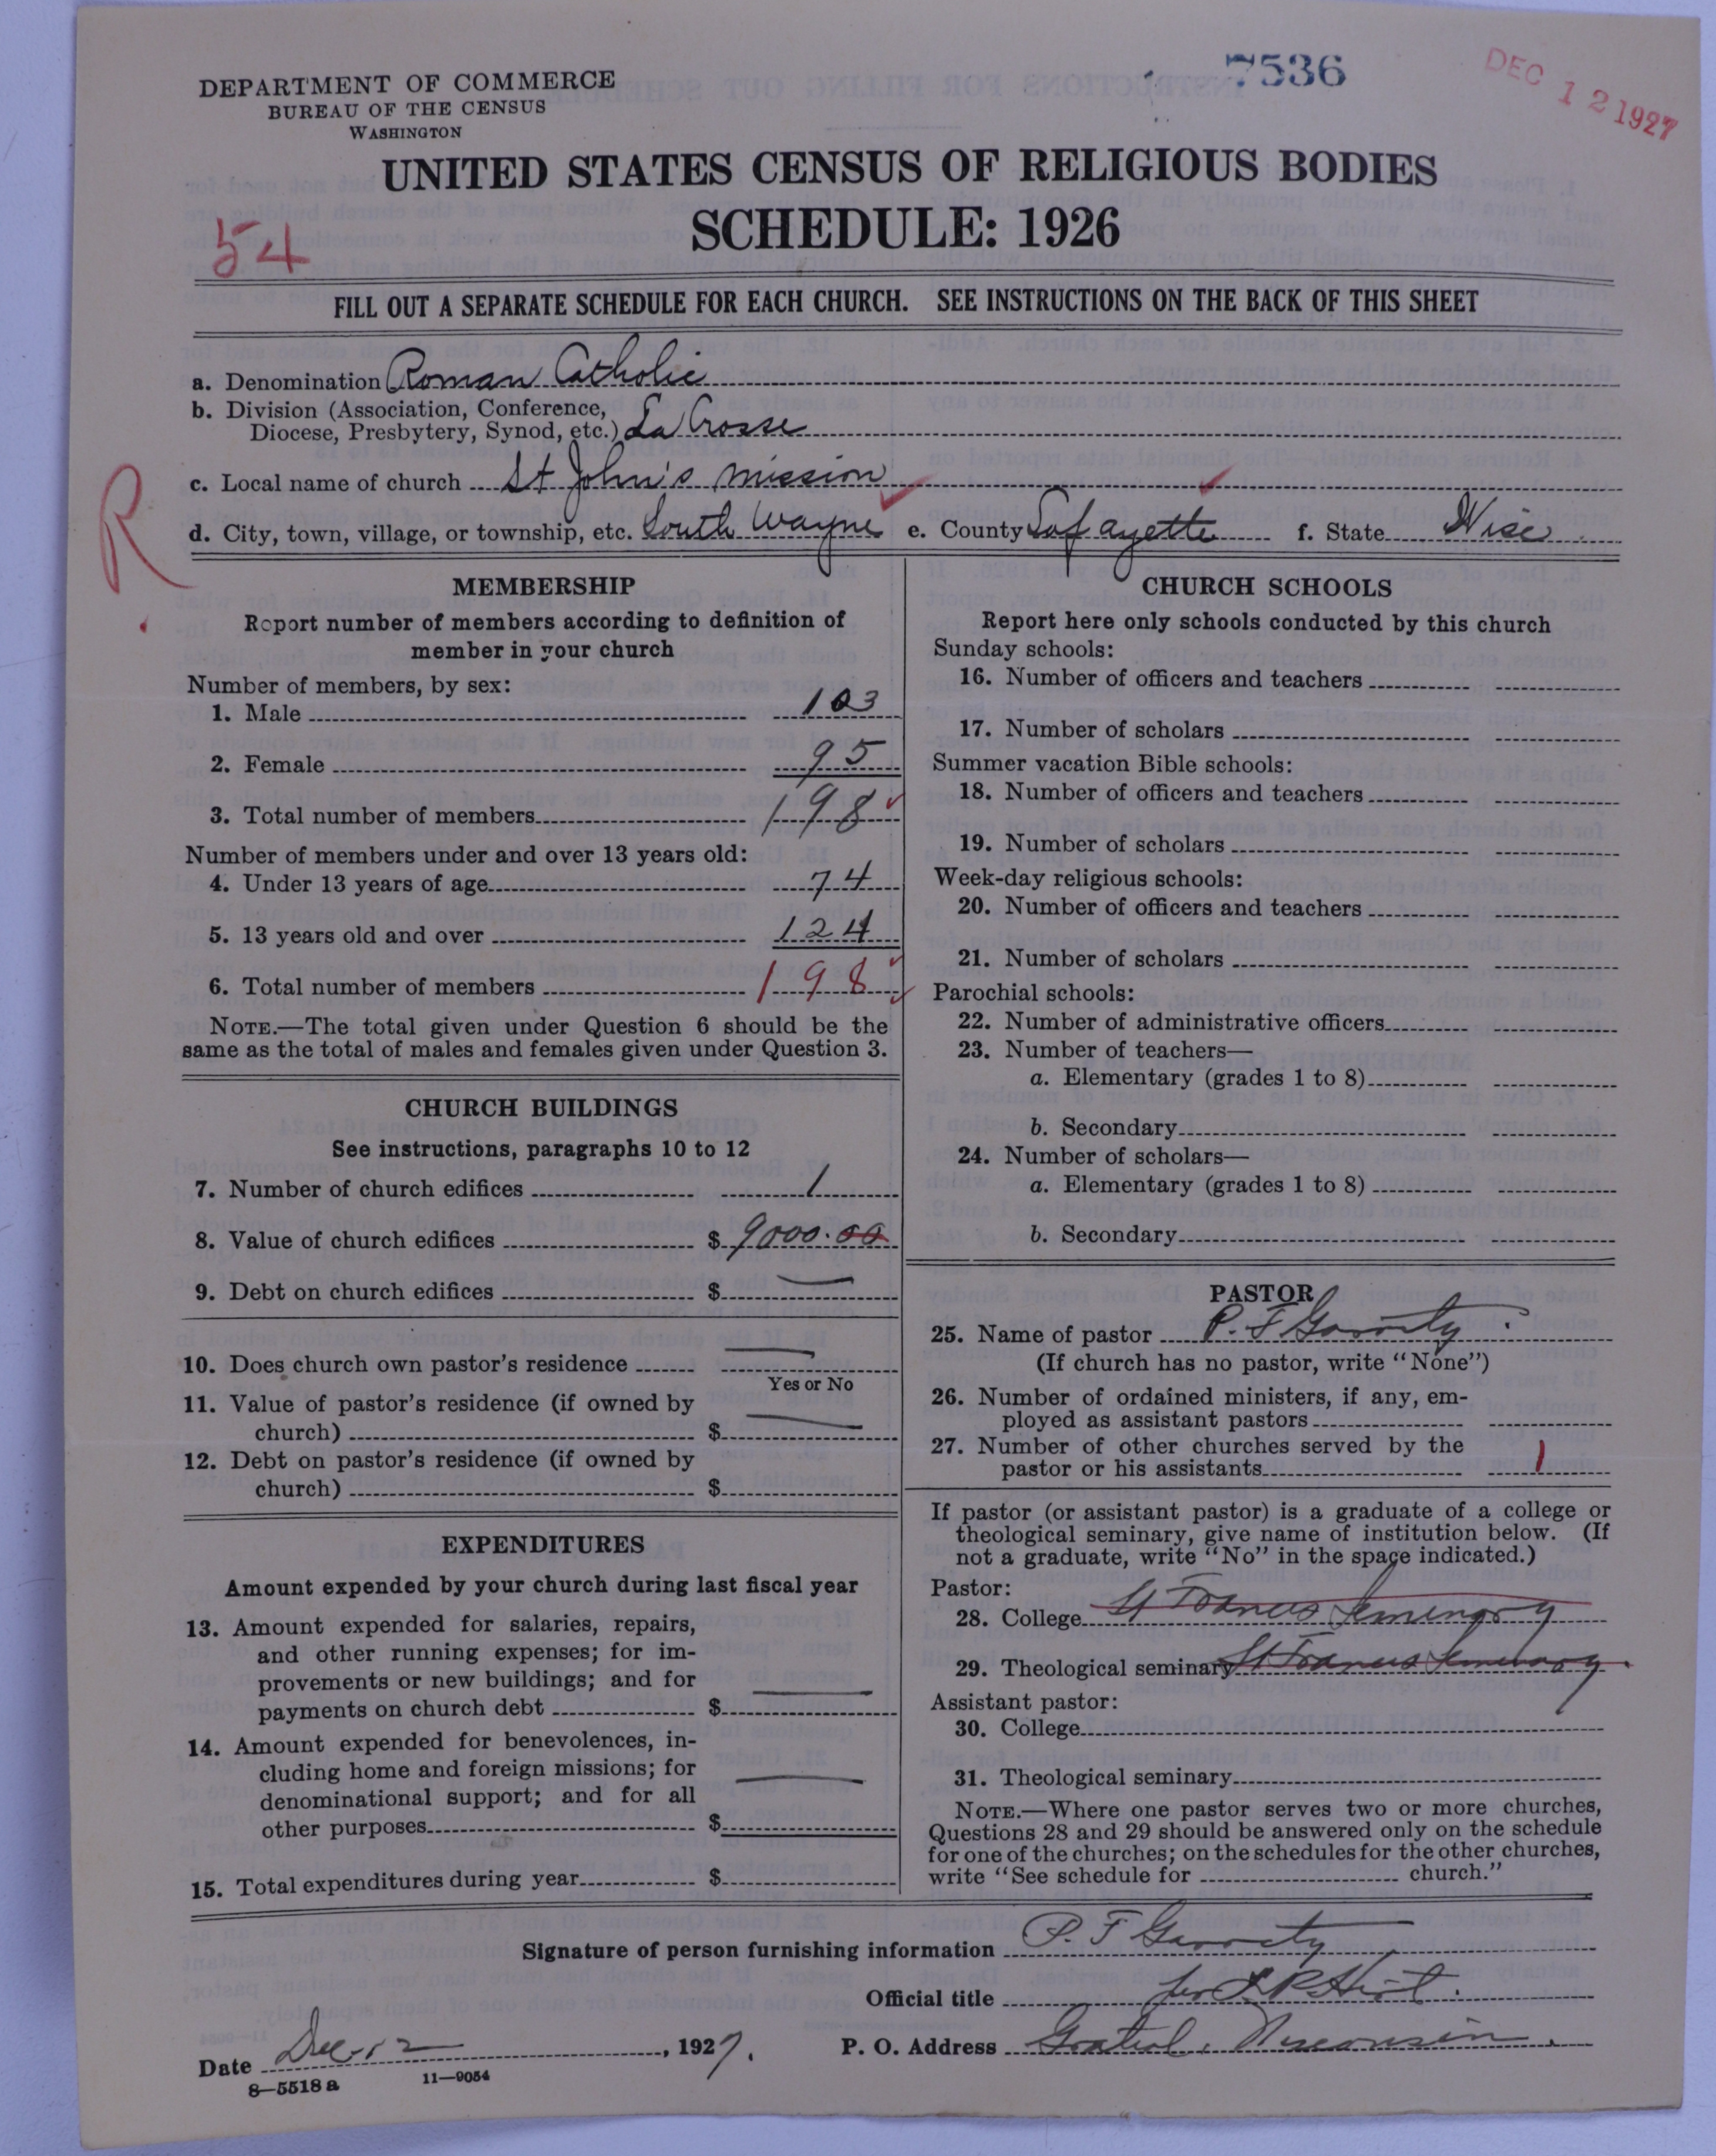 DEPARTMENT OF COMMERCE
BUREAU OF THE CENSUS
WASHINGTON
7536
DEC 12 1927
UNITED STATES CENSUS OF RELIGIOUS BODIES
SCHEDULE: 1926
54
FILL OUT A SEPARATE SCHEDULE FOR EACH CHURCH. SEE INSTRUCTIONS ON THE BACK OF THIS SHEET
a. Denomination Roman Catholic
b. Division (Association, Conference,
Diocese, Presbytery, Synod, etc.) La Crosse
c. Local name of church St John's Mission
d. City, town, village, or township, etc. South Wayne e. County Lafayette f. State Wisc
R
MEMBERSHIP
Report number of members according to definition of
member in your church
Number of members, by sex:
1. Male 103
2. Female 95
3. Total number of members 198
Number of members under and over 13 years old:
4. Under 13 years of age 74
5. 13 years old and over 124
6. Total number of members 198
NOTE.—The total given under Question 6 should be the
same as the total of males and females given under Question 3.
CHURCH BUILDINGS
See instructions, paragraphs 10 to 12
7. Number of church edifices 1
8. Value of church edifices $ 9000.00
9. Debt on church edifices $ —
10. Does church own pastor's residence —
Yes or No
11. Value of pastor's residence (if owned by
church) $ —
12. Debt on pastor's residence (if owned by
church) $
EXPENDITURES
Amount expended by your church during last fiscal year
13. Amount expended for salaries, repairs,
and other running expenses; for im-
provements or new buildings; and for
payments on church debt $ —
14. Amount expended for benevolences, in-
cluding home and foreign missions; for
denominational support; and for all
other purposes $ —
15. Total expenditures during year $
CHURCH SCHOOLS
Report here only schools conducted by this church
Sunday schools:
16. Number of officers and teachers
17. Number of scholars
Summer vacation Bible schools:
18. Number of officers and teachers
19. Number of scholars
Week-day religious schools:
20. Number of officers and teachers
21. Number of scholars
Parochial schools:
22. Number of administrative officers
23. Number of teachers—
a. Elementary (grades 1 to 8)
b. Secondary
24. Number of scholars—
a. Elementary (grades 1 to 8)
b. Secondary
PASTOR
25. Name of pastor P. F Garrity
(If church has no pastor, write "None")
26. Number of ordained ministers, if any, em-
ployed as assistant pastors
27. Number of other churches served by the
pastor or his assistants 1
If pastor (or assistant pastor) is a graduate of a college or
theological seminary, give name of institution below. (If
not a graduate, write "No" in the space indicated.)
Pastor:
28. College St Francis Seminary
29. Theological seminary St Francis Seminary
Assistant pastor:
30. College
31. Theological seminary
NOTE.—Where one pastor serves two or more churches,
Questions 28 and 29 should be answered only on the schedule
for one of the churches; on the schedules for the other churches,
write "See schedule for church."
Signature of person furnishing information P. F Garrity
Official title per
Date Dec 12, 1927. P. O. Address Gratiot, Wisconsin.
8—5518 a 11—9054